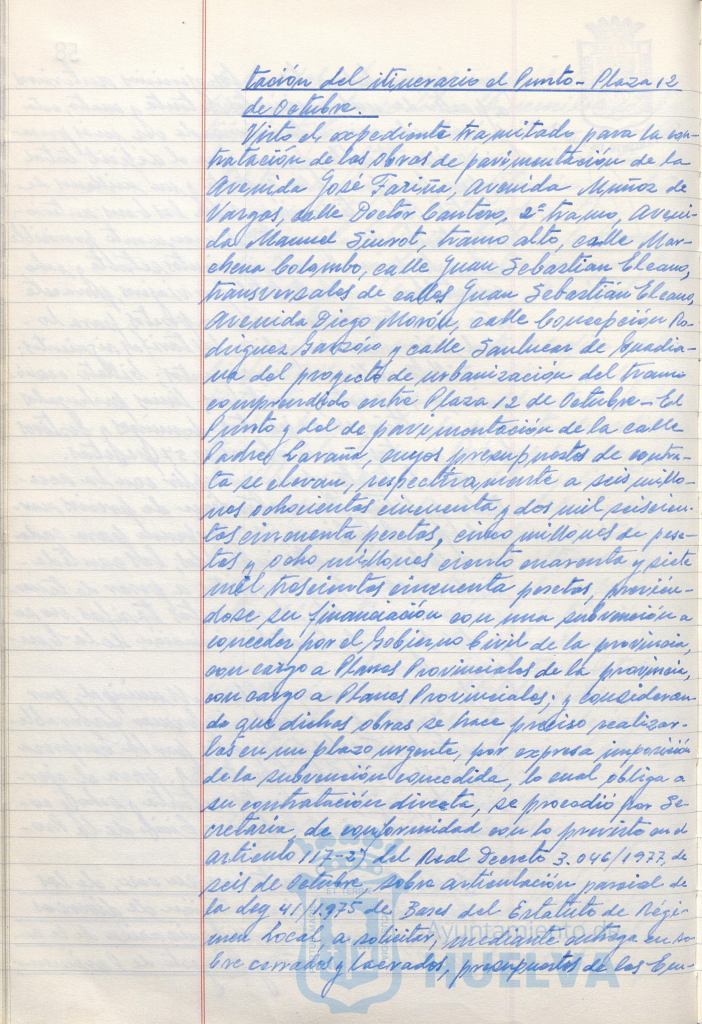 tación del itinerario el Punto - Plaza 12
de Octubre.
Visto el expediente tramitado para la con-
tratación de las obras de pavimentación de la
Avenida José Fariña, Avenida Muñoz de
Vargas, calle Doctor Cantero, 2º tramo, Aveni-
da Manuel Siurot, tramo alto, calle Mar-
chena Colombo, calle Juan Sebastian Elcano,
transversales de calles Juan Sebastián Elcano,
Avenida Diego Morón, calle Concepción Ro-
driguez Garzón y calle Sanlucar de Guadia-
na del proyecto de urbanización del tramo
comprendido entre Plaza 12 de Octubre - El
Punto y del de pavimentación de la calle
Padre Laraña, cuyos presupuestos de contra-
ta se elevan, respectivamente a seis millo-
nes ochocientas cincuenta y dos mil seiscien-
tas cincuenta pesetas, cinco millones de pese-
tas y ocho millones ciento cuarenta y siete
mil trescientas cincuenta pesetas, previén-
dose su financiación con una subvención a
conceder por el Gobierno Civil de la provincia,
con cargo a Planes Provinciales de la provincia,
con cargo a Planes Provinciales; y consideran-
do que dichas obras se hace preciso realizar-
las en un plazo urgente, por expresa imposición
de la subvención concedida, lo cual obliga a
su contratación directa, se procedió por Se-
cretaría, de conformidad con lo previsto en el
artículo 117-2º del Real Decreto 3.046/1977, de
seis de Octubre, sobre articulación parcial de
la Ley 41/1.975 de Bases del Estatuto de Régi-
men Local, a solicitar, mediante entrega en so-
bre cerrados y lacrados, presupuestos de las Em-
Ayuntamiento de
HUELVA